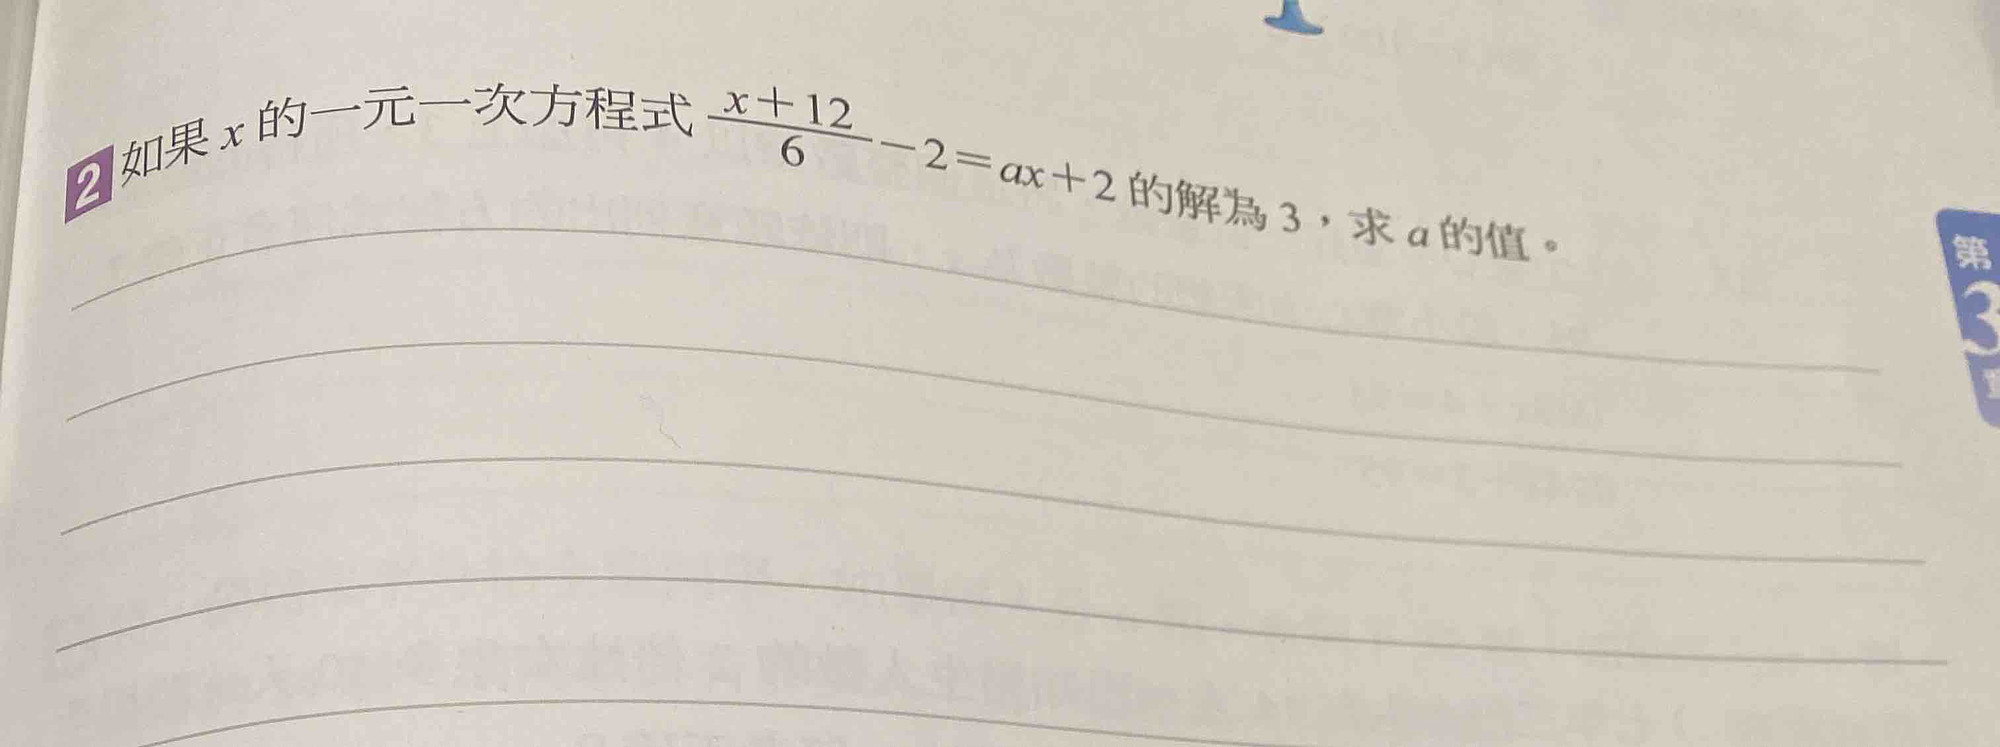 2 如果 x 的一元一次方程式 \frac{x+12}{6}-2=ax+2 的解為 3，求 a 的值。
第
3